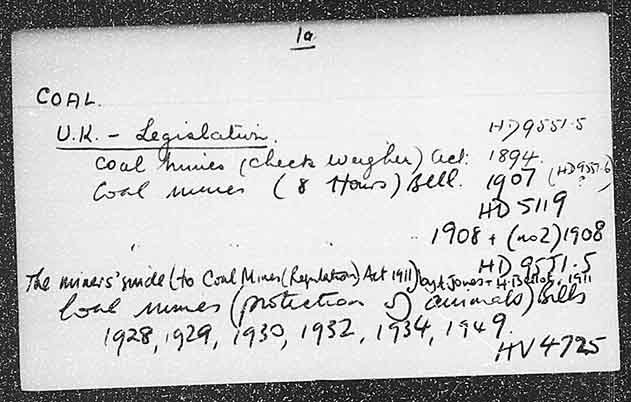 1a
COAL.
U.K. - Legislation.
HD9551.5
Coal Mines (Check Weigher) Act. 1894.
Coal Mines (8 Hours) Bill. 1907 (HD9551.6)
?
HD 5119
1908 + (no2) 1908
HD 9551.5
The miners' guide (to Coal Mines (Regulation) Act 1911) by A Jones + H. Bellot, 1911
Coal Mines (protection of animals) Bills
1928, 1929, 1930, 1932, 1934, 1949.
HV 4725